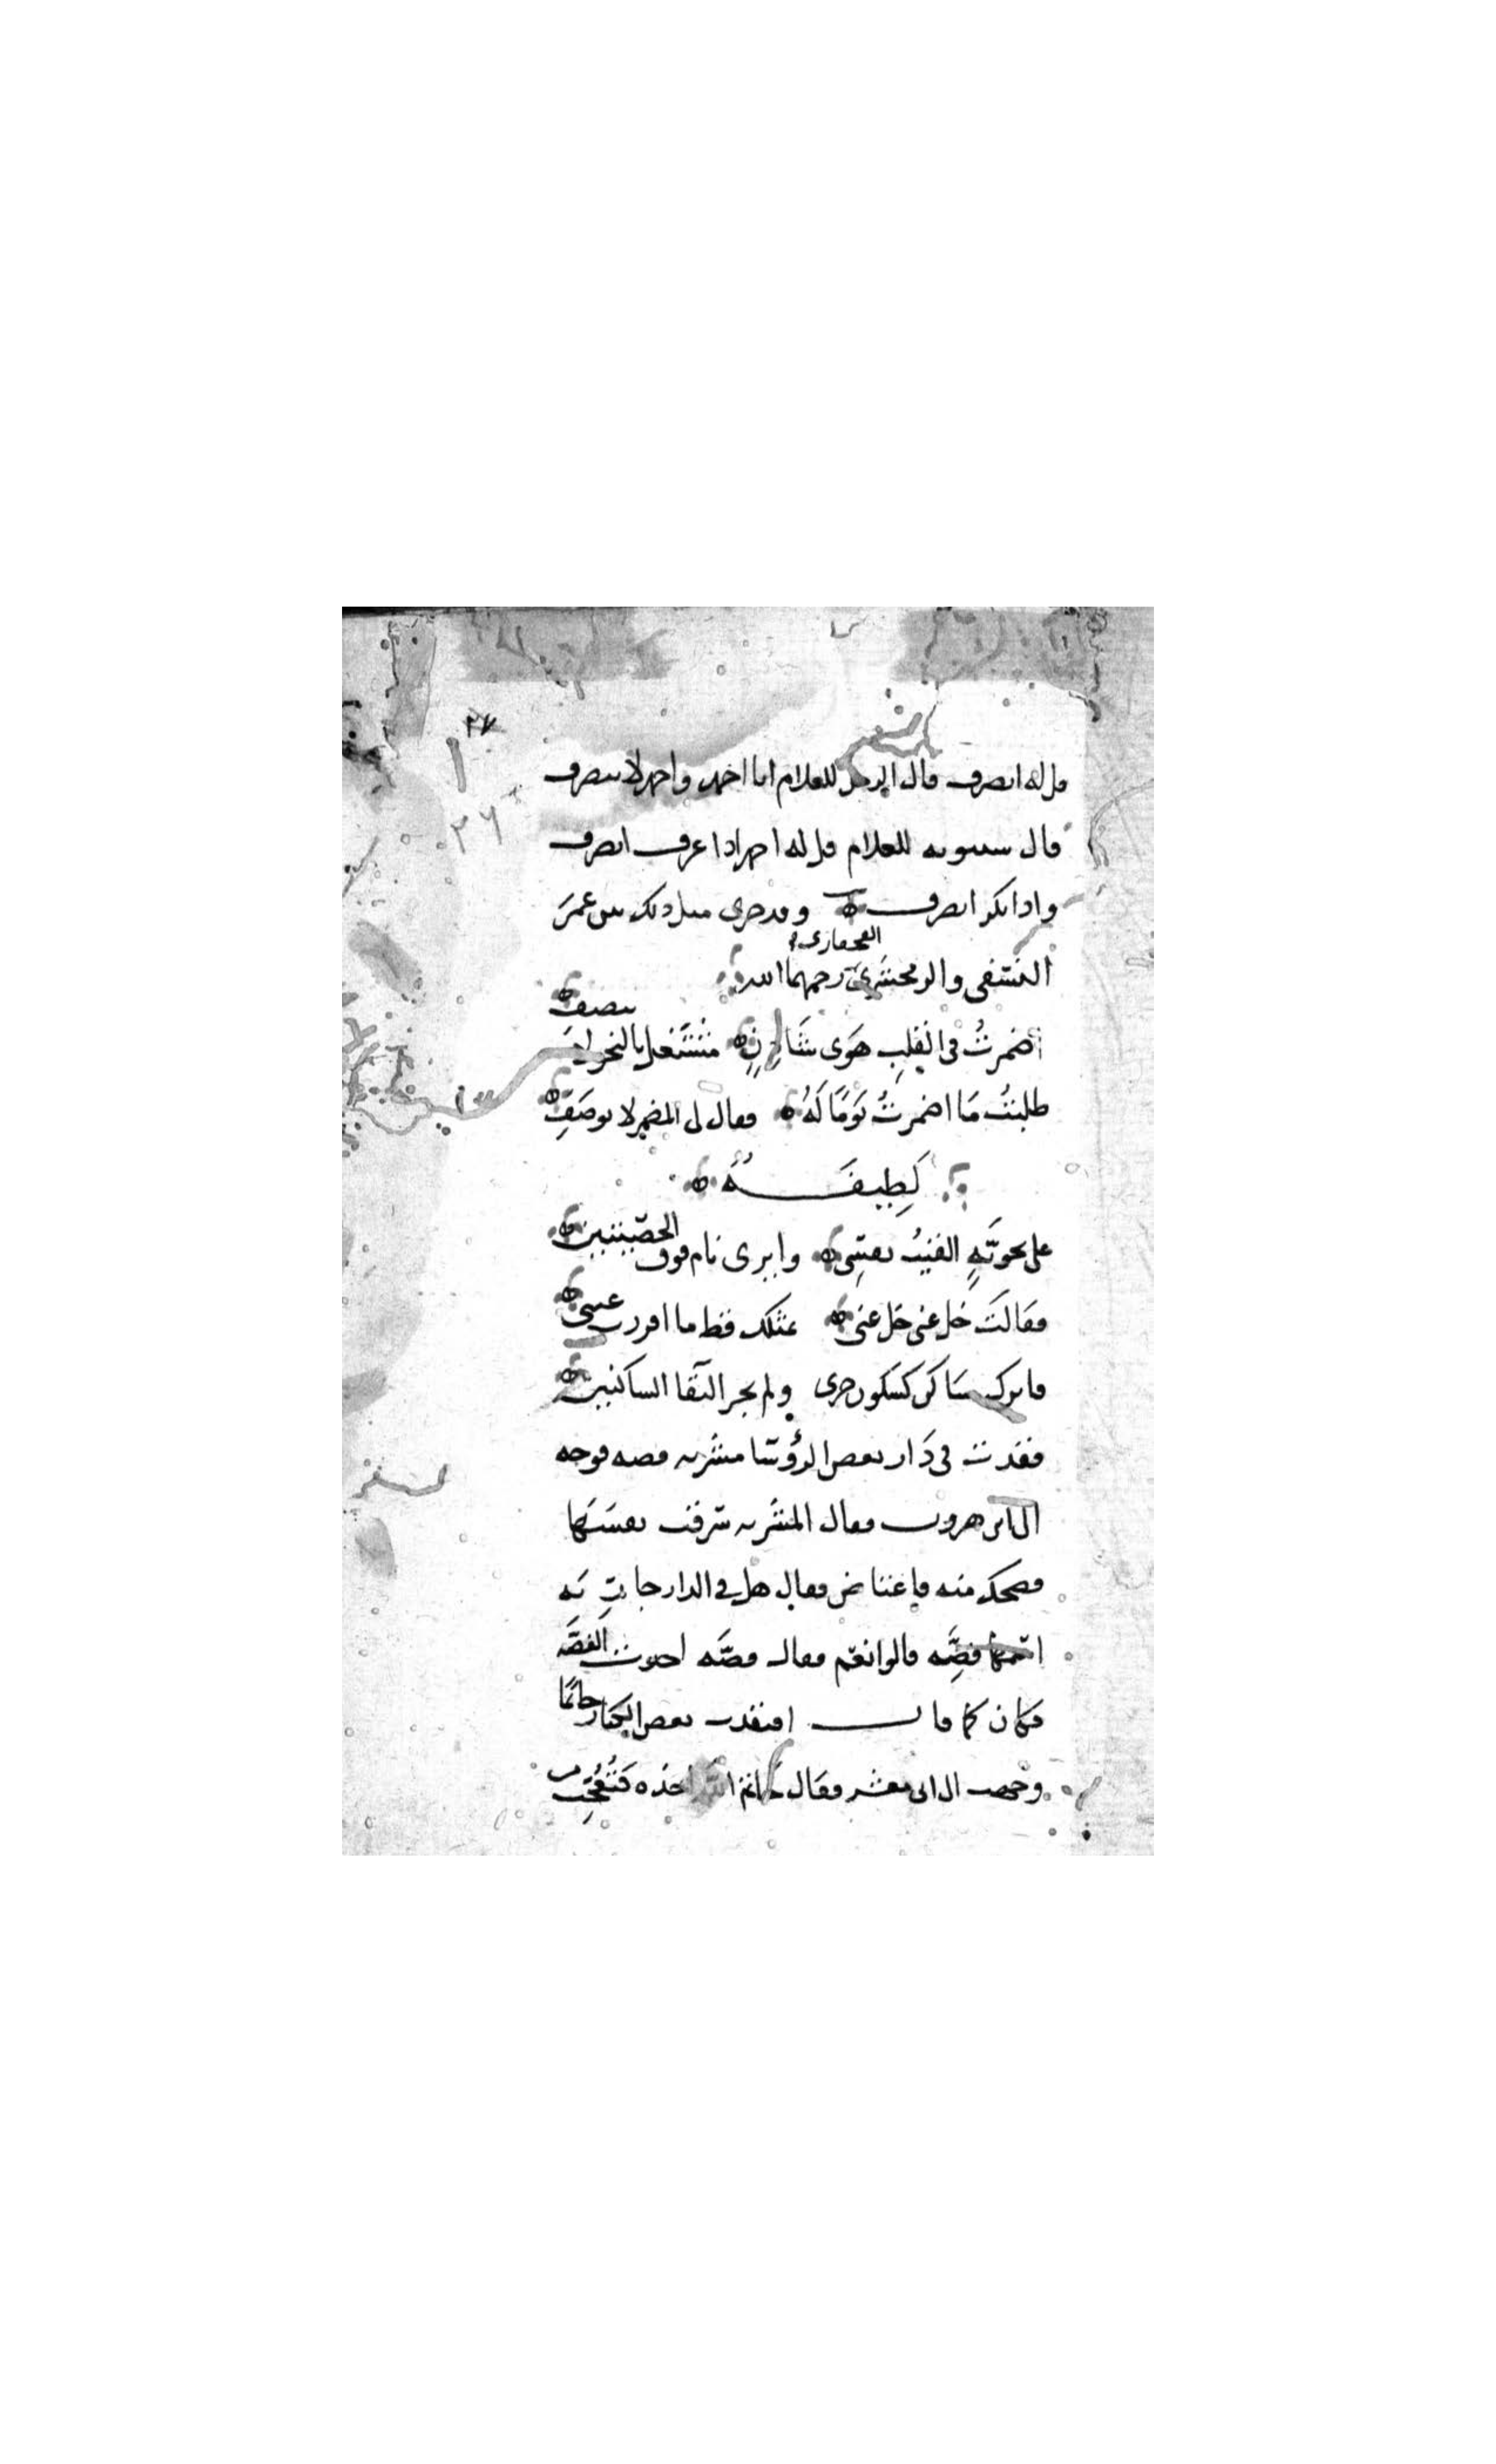 ٢٧
٢٦
قل له انصرف قال الرجل للغلام انا احمد واحمد لا ينصرف
قال سيبويه للغلام قل له احمد اذا عرف انصرف
واذا نكر انصرف وقد جرى مثل ذلك بين عمر
النسفي والزمخشري رحمهما الله
اضمرت في القلب هوى شادن مشتغل بالنحو لا ينصف
طلبت ما اضمرت يوما له فقال لي المضمر لا يوصف
لطيفة
على نحوية الفيت نفسي وايري نام فوق الخصيتين
فقالت خل عني خل عني عيني
ساكن كسكون جرى ولم يجز التقا الساكنين
ففقدت في دار بعض الرؤسا مشربه فضه فوجه
الى ابن هرون فقال المشربه سرقت نفسها
فضحك منه فاغتاض وقال هل في الدار جاريه
اسمها فضه قالوا نعم فقال فضه اخذت الفضه
فكان كما قال افتقد بعض الكبار خاتما
الى ابي معشر فقال خاتم الله اخذه فتعجب